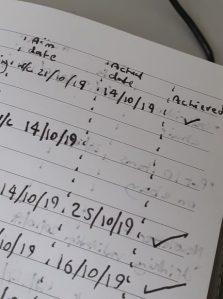 Aim Actual
date date Achieved
w/c 21/10/19 14/10/19 ✓
w/c 14/10/19
14/10/19 25/10/19 ✓
/10/19 16/10/19 ✓